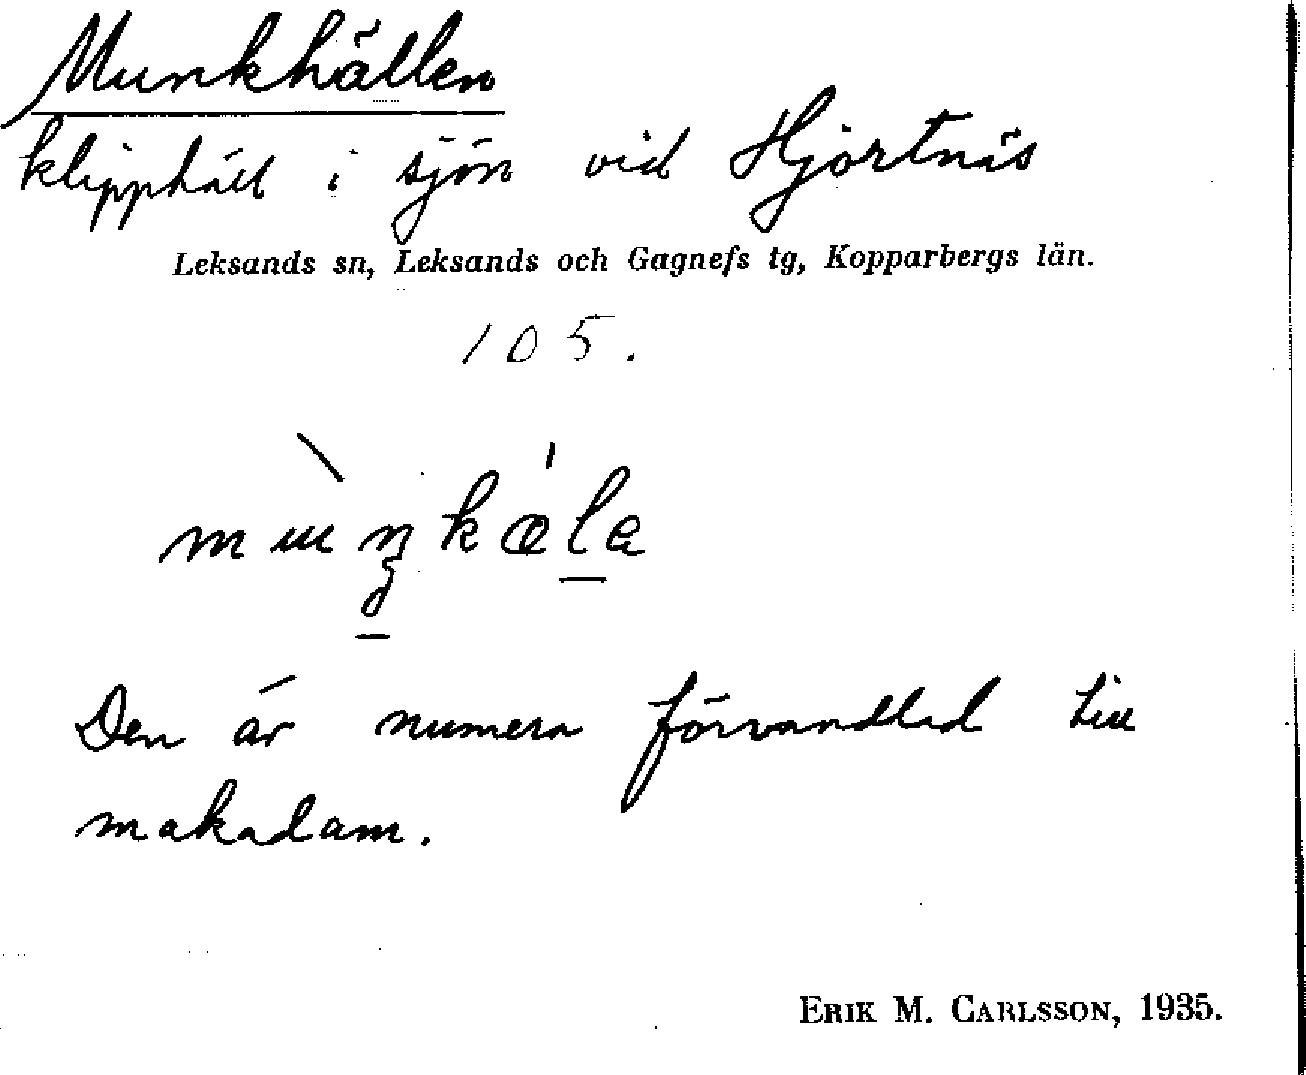 Munkhällen
klipphäll i sjön vid Hjortnäs
Leksands sn, Leksands och Gagnefs tg, Kopparbergs län.
105.
Den är numera förvandlad till
makadam.
ERIK M. CARLSSON, 1935.